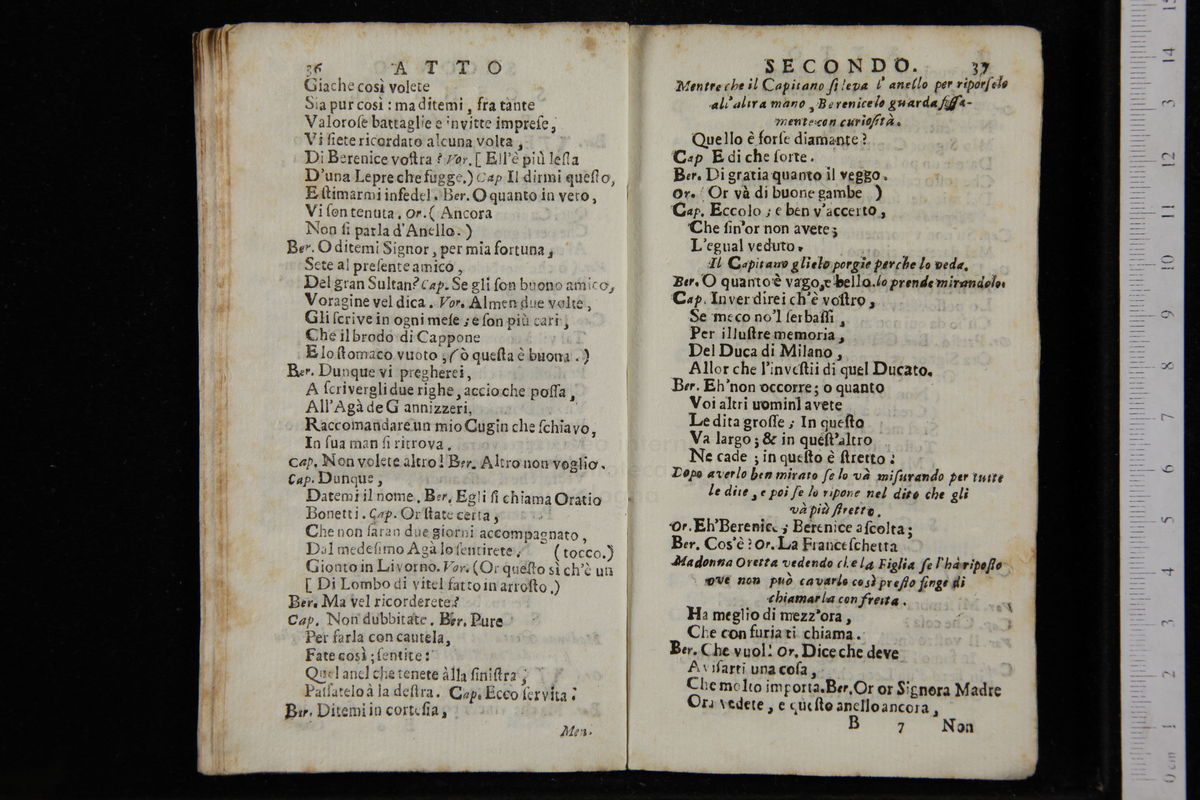 36 ATTO
Giache così volete
Sia pur così : ma ditemi , fra tante
Valorose battaglie e invitte imprese,
Vi siete ricordato alcuna volta ,
Di Berenice vostra ? Vor. [ Ell'è più lesta
D'una Lepre che fugge.) Cap Il dirmi questo,
Estimarmi infedel. Ber. O quanto in vero,
Vi son tenuta. Or. ( Ancora
Non si parla d'Anello. )
Ber. O ditemi Signor , per mia fortuna ,
Sete al presente amico ,
Del gran Sultan? Cap. Se gli son buono amico,
Voragine vel dica . Vor. Almen due volte ,
Gli scrive in ogni mese ; e son più cari ,
Che il brodo di Cappone
E lo stomaco vuoto , ( ò questa è buona . )
Ber. Dunque vi pregherei ,
A scrivergli due righe , accioche possa ,
All'Agà de Giannizzeri,
Raccomandare un mio Cugin che schiavo,
In sua man si ritrova .
Cap. Non volete altro! Ber. Altro non voglio.
Cap. Dunque ,
Datemi il nome . Ber. Egli si chiama Oratio
Bonetti . Cap. Or state certa ,
Che non saran due giorni accompagnato ,
Dal medesimo Agà lo sentirete . ( tocco.)
Gionto in Livorno. Vor. (Or questo sì ch'è un
[ Di Lombo di vitel fatto in arrosto .)
Ber. Ma vel ricorderete?
Cap. Non dubbitate . Ber. Pure
Per farla con cautela,
Fate così ; sentite :
Quel anel che tenete àlla sinistra ;
Passatelo à la destra . Cap. Ecco servita :
Ber. Ditemi in cortesia ,
Men-
SECONDO. 37
Mentre che il Capitano si leva l'anello per riporselo
all'altra mano , Berenice lo guarda fissa-
mente con curiosità.
Quello è forse diamante ?
Cap E di che sorte .
Ber. Di gratia quanto il veggo .
Or. ( Or và di buone gambe )
Cap. Eccolo ; e ben v'accerto ,
Che sin'or non avete ;
L'egual veduto .
Il Capitano glielo porgie perche lo veda.
Ber. O quanto è vago, e bello. lo prende mirandolo.
Cap. In ver direi ch'è vostro ,
Se meco no'l serbassi ,
Per illustre memoria ,
Del Duca di Milano ,
Allor che l'investii di quel Ducato.
Ber. Eh' non occorre ; o quanto
Voi altri uomini avete
Le dita grosse ; In questo
Va largo ; & in quest'altro
Ne cade ; in questo è stretto :
Dopo averlo ben mirato se lo và misurando per tutte
le dite , e poi se lo ripone nel dito che gli
và più stretto .
Or. Eh' Berenice ; Berenice ascolta ;
Ber. Cos'è ? Or. La Franceschetta
Madonna Oretta vedendo che la Figlia se l'hà riposto
ove non può cavarlo così presto finge di
chiamarla con fretta .
Ha meglio di mezz'ora ,
Che con furia ti chiama .
Ber. Che vuol! Or. Dice che deve
Avisarti una cosa ,
Che molto importa. Ber. Or or Signora Madre
Ora vedete , e questo anello ancora ,
B 7 Non